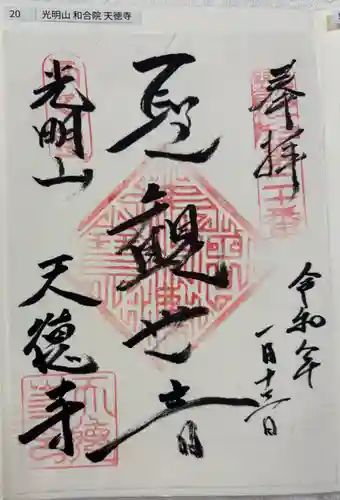 20 光明山 和合院 天徳寺
奉拝
令和
一月十
聖觀世音
光明山
天德寺